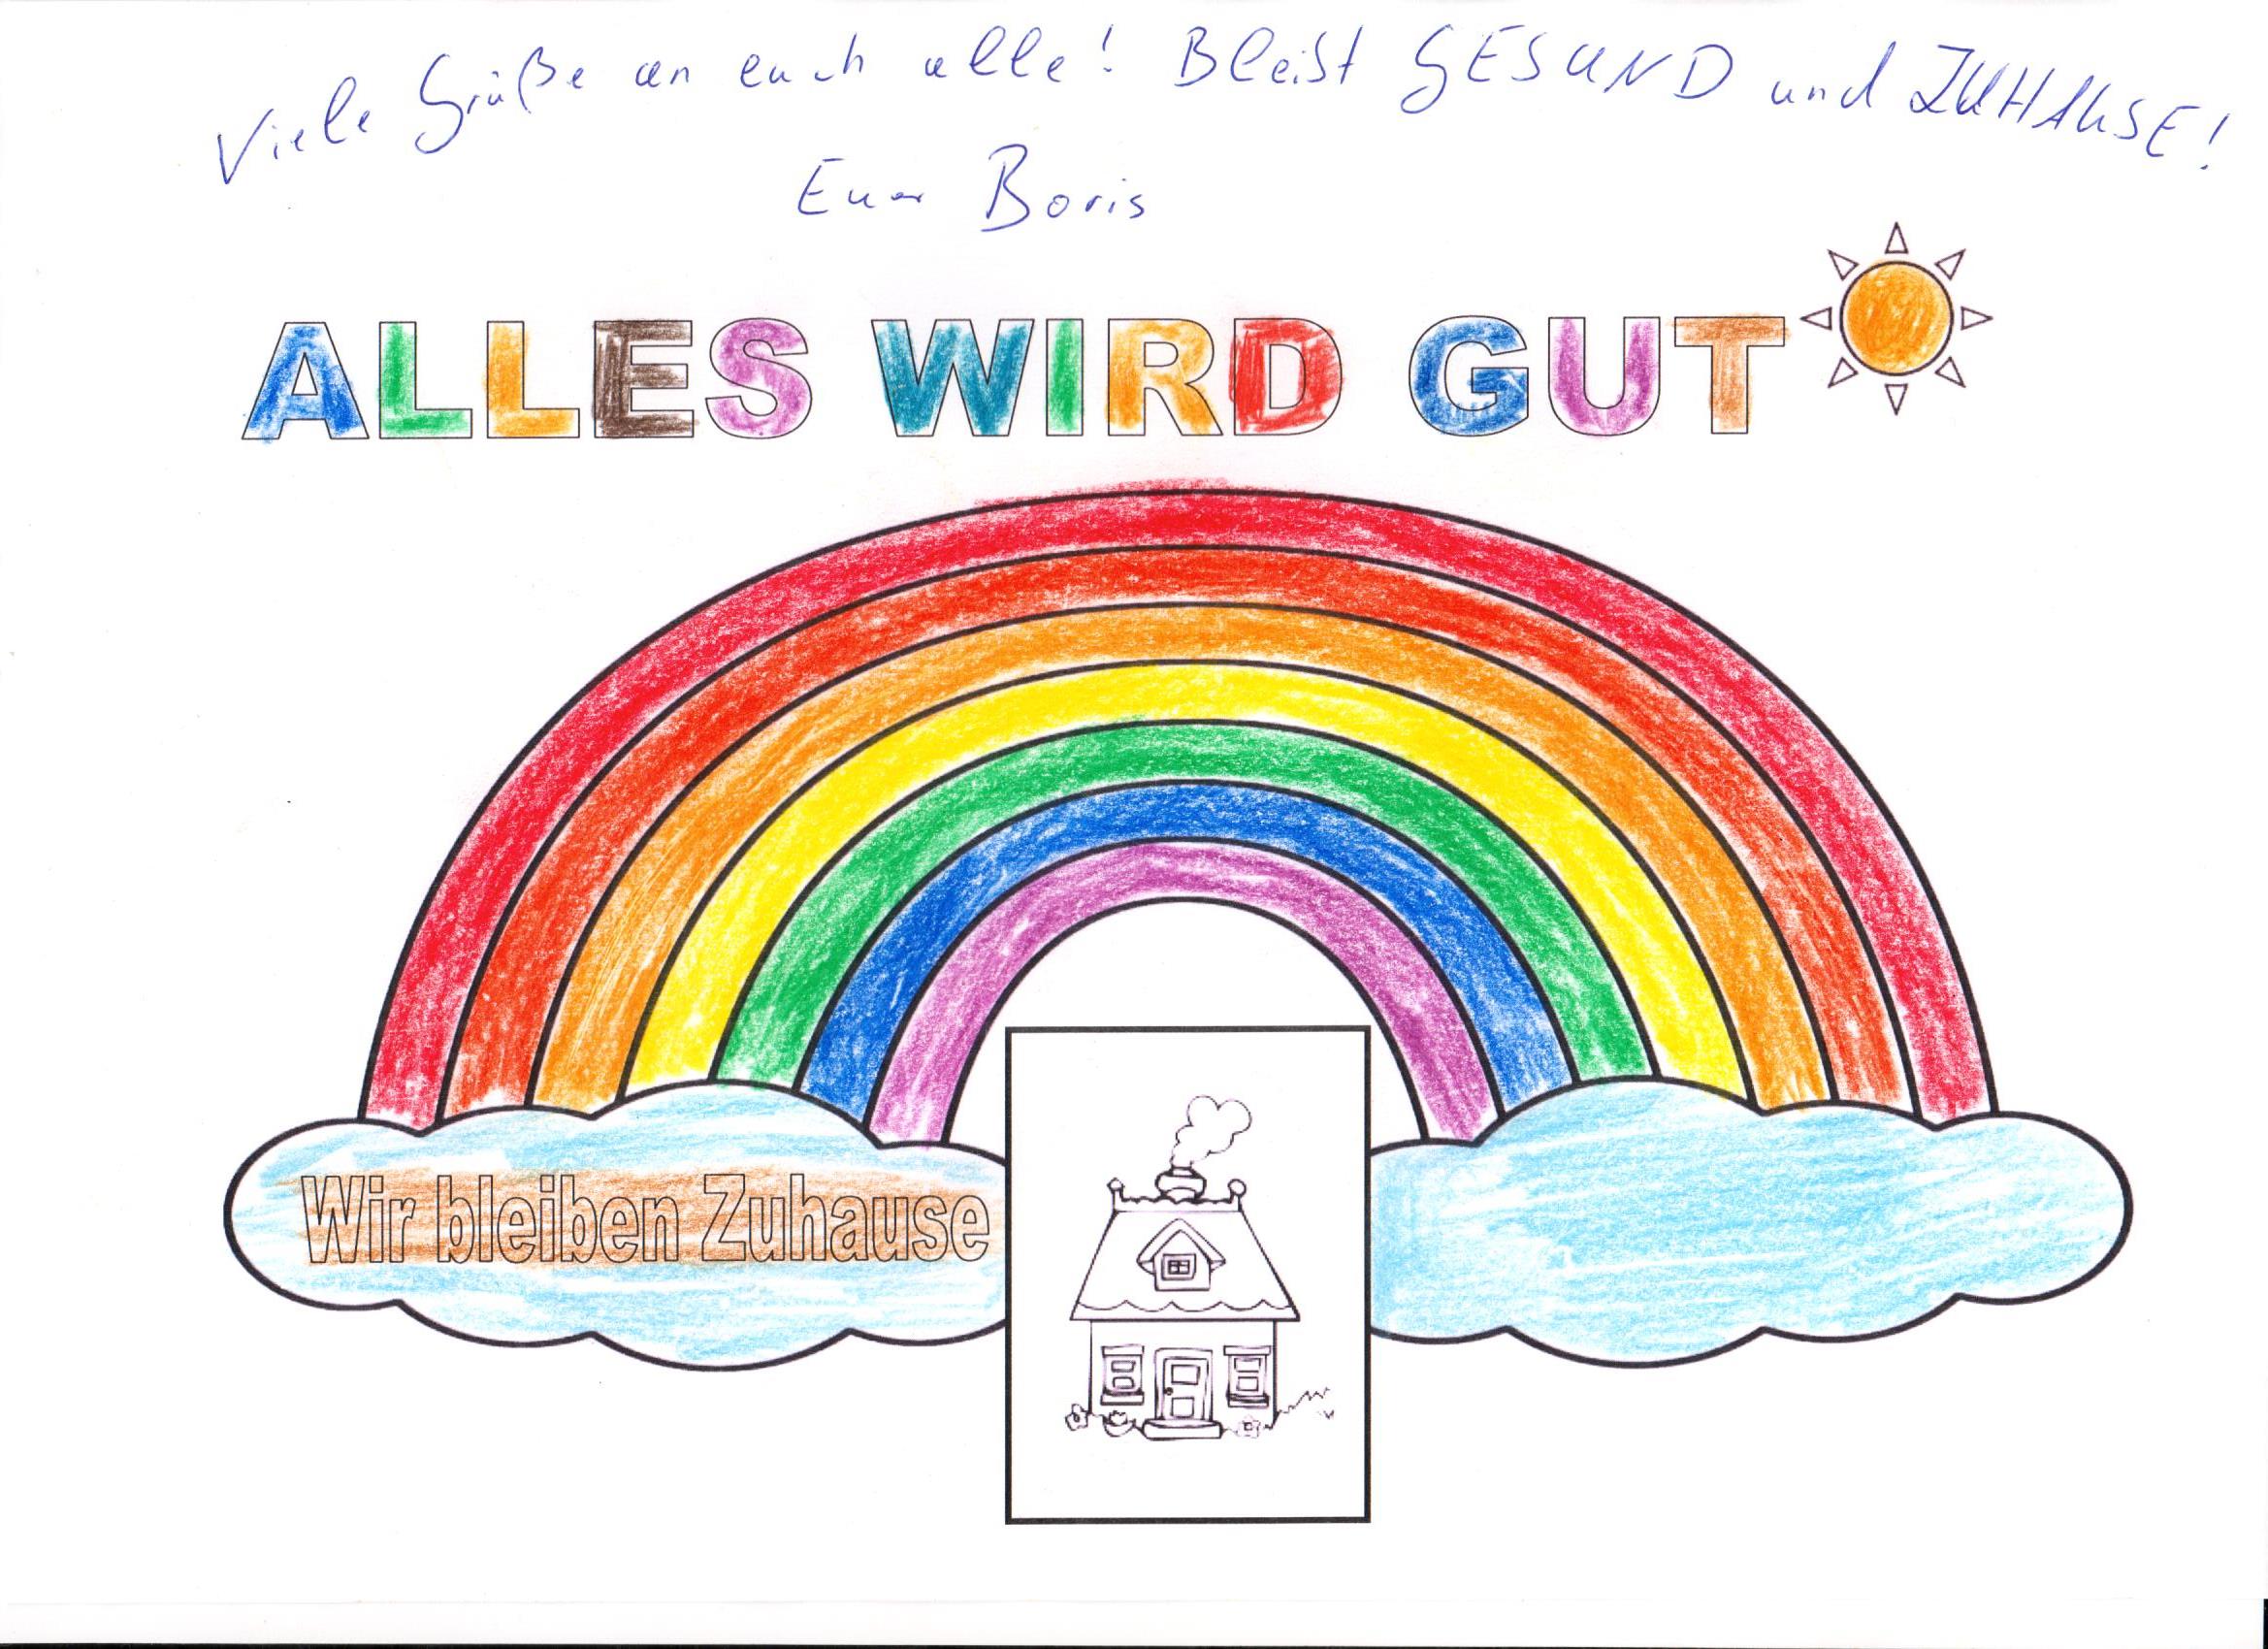 Viele Grüße an euch alle! Bleibt GESUND und ZUHAUSE!
Euer Boris
ALLES WIRD GUT
Wir bleiben Zuhause